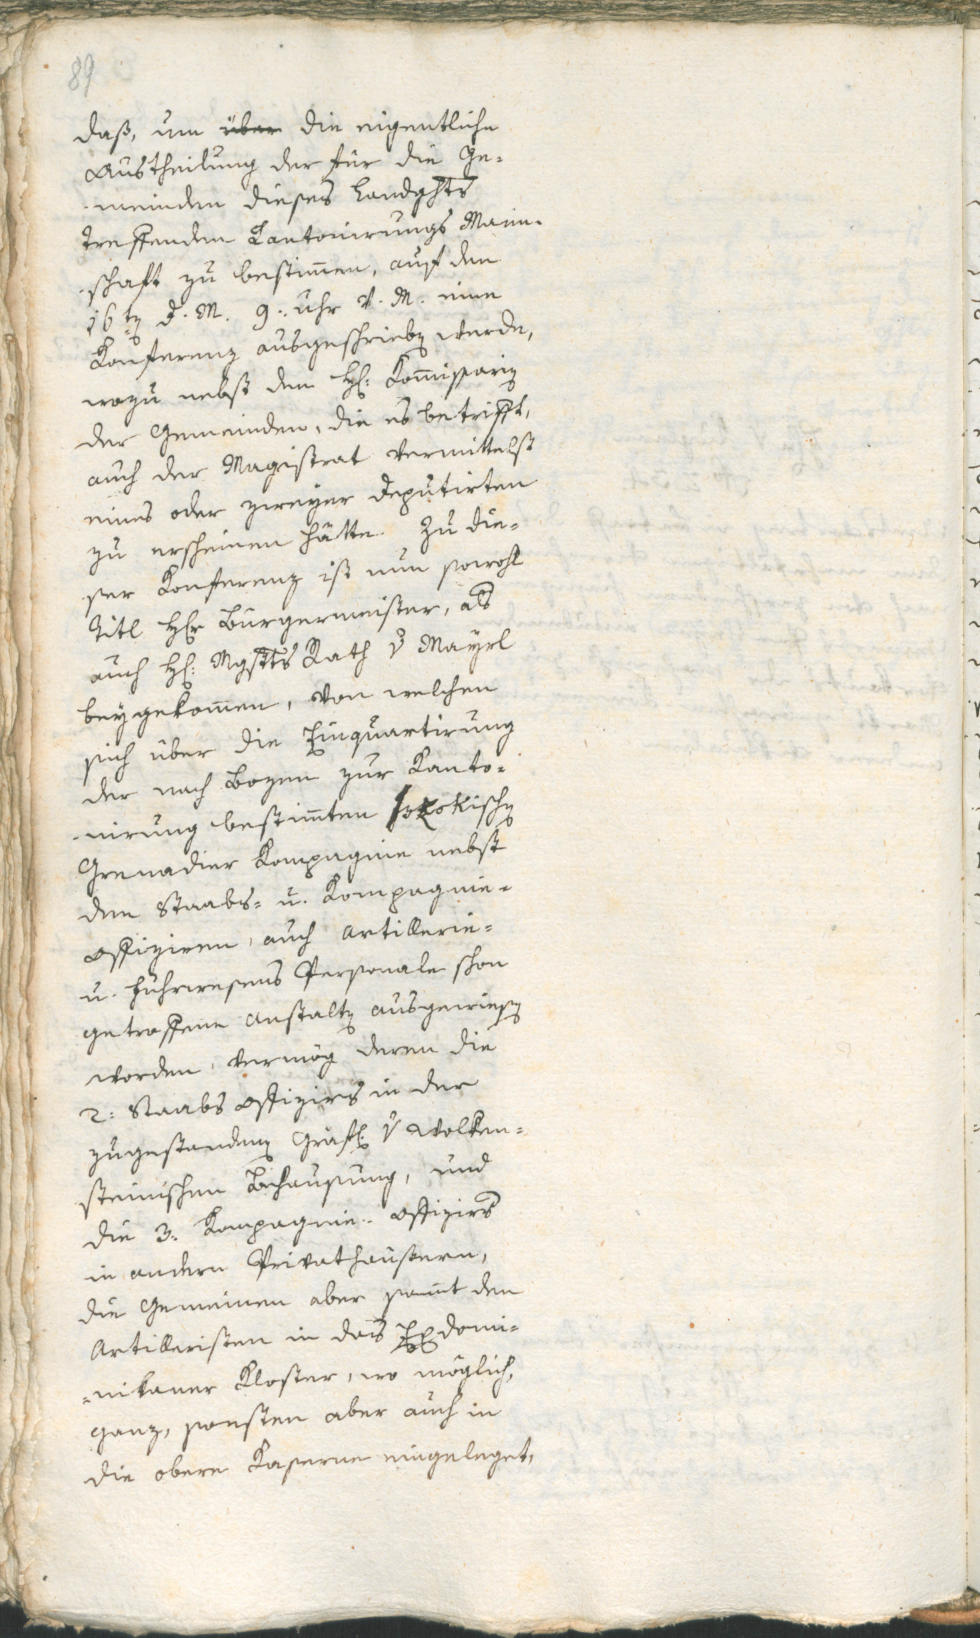 89
daß, um über die eigentliche
Austheilung der für die Ge-
meinden dieses Landghts
treffenden Kantonirungs Mann-
schaft zu bestim̄en, auf den
16tn d. M. 9. Uhr V. M. eine
Konferenz ausgeschriebn werde,
wozu nebst den H: Kom̄issarin
der Gemeinden, die es betrifft,
auch der Magistrat vermittelst
eines oder zweyer Deputirten
zu erscheinen hätte. Zu die-
ser Konferenz ist nun sowohl
Titl Hr Bürgermeister, als
auch H: Mgstts Rath v Mayrl
beygekom̄en, von welchen
sich über die Einquartirung
der nach Bozen zur Kanto-
nirung bestim̄ten
Grenadier Kompagnie nebst
den Staabs- u. Kompagnie-
Offiziren, auch Artillerie-
u. Fuhrwesens Personale schon
getroffene Anstaltn ausgewiesn
worden, vermög deren die
2: Staabs Offizirs in der
zugestandenn Gräfl: v Wolken-
steinischen Behausung, und
die 3: Kompagnie- Offizirs
in andern Privathäusern,
die Gemeinen aber sam̄t den
Artilleristen in das Exdomi-
nikaner Kloster, wo möglich,
ganz, sonsten aber auch in
die obere Kaserne eingeleget,